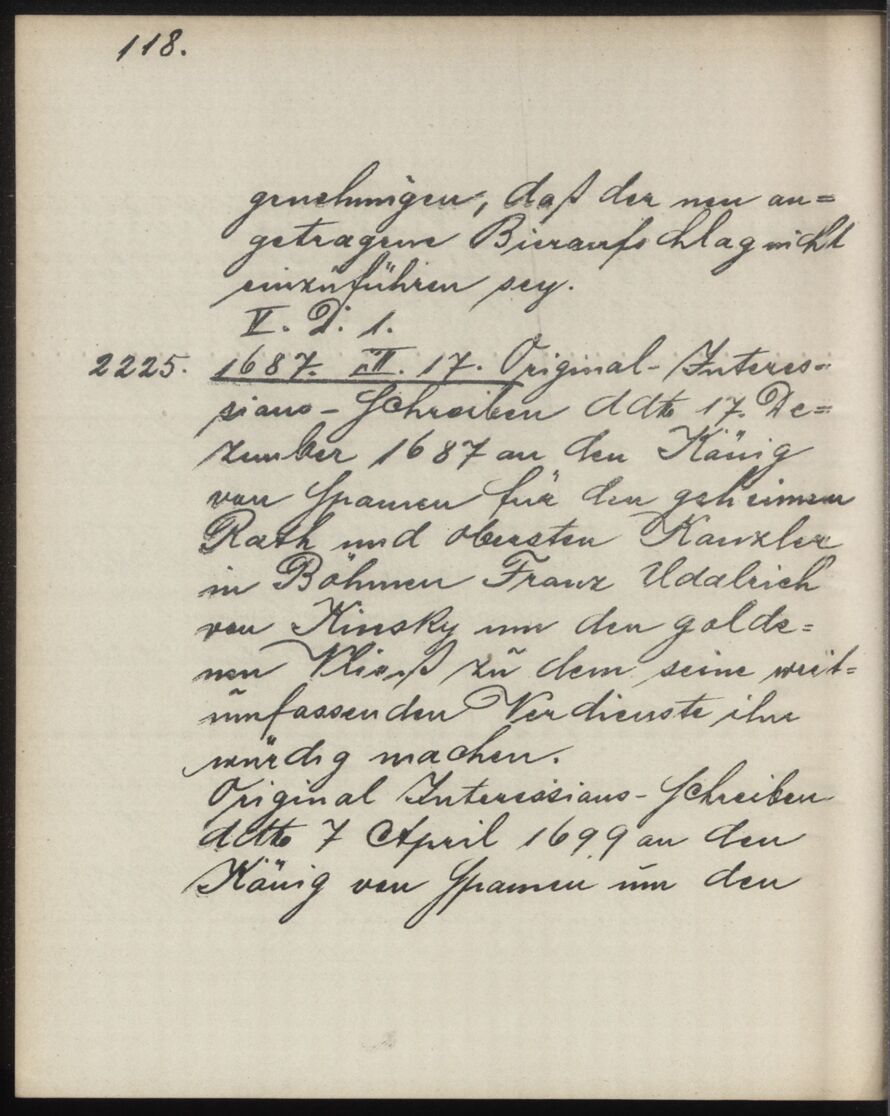 118.
genehmigen, daß der neu an=
getragene Bieraufschlag nicht
einzuführen sey.
V. D. 1.
2225. 1687. XII. 17. Original-Interes=
sions-Schreiben ddto 17. De=
zember 1687 an den König
von Spanien für den geheimen
Rath und obersten Kanzler
in Böhmen Franz Udalrich
von Kinsky um den golde=
nen Vließ zu dem seine weit=
umfassenden Verdienste ihn
würdig machen.
Original Interessions-Schreiben
ddtto 7 April 1699 an den
König von Spanien um den